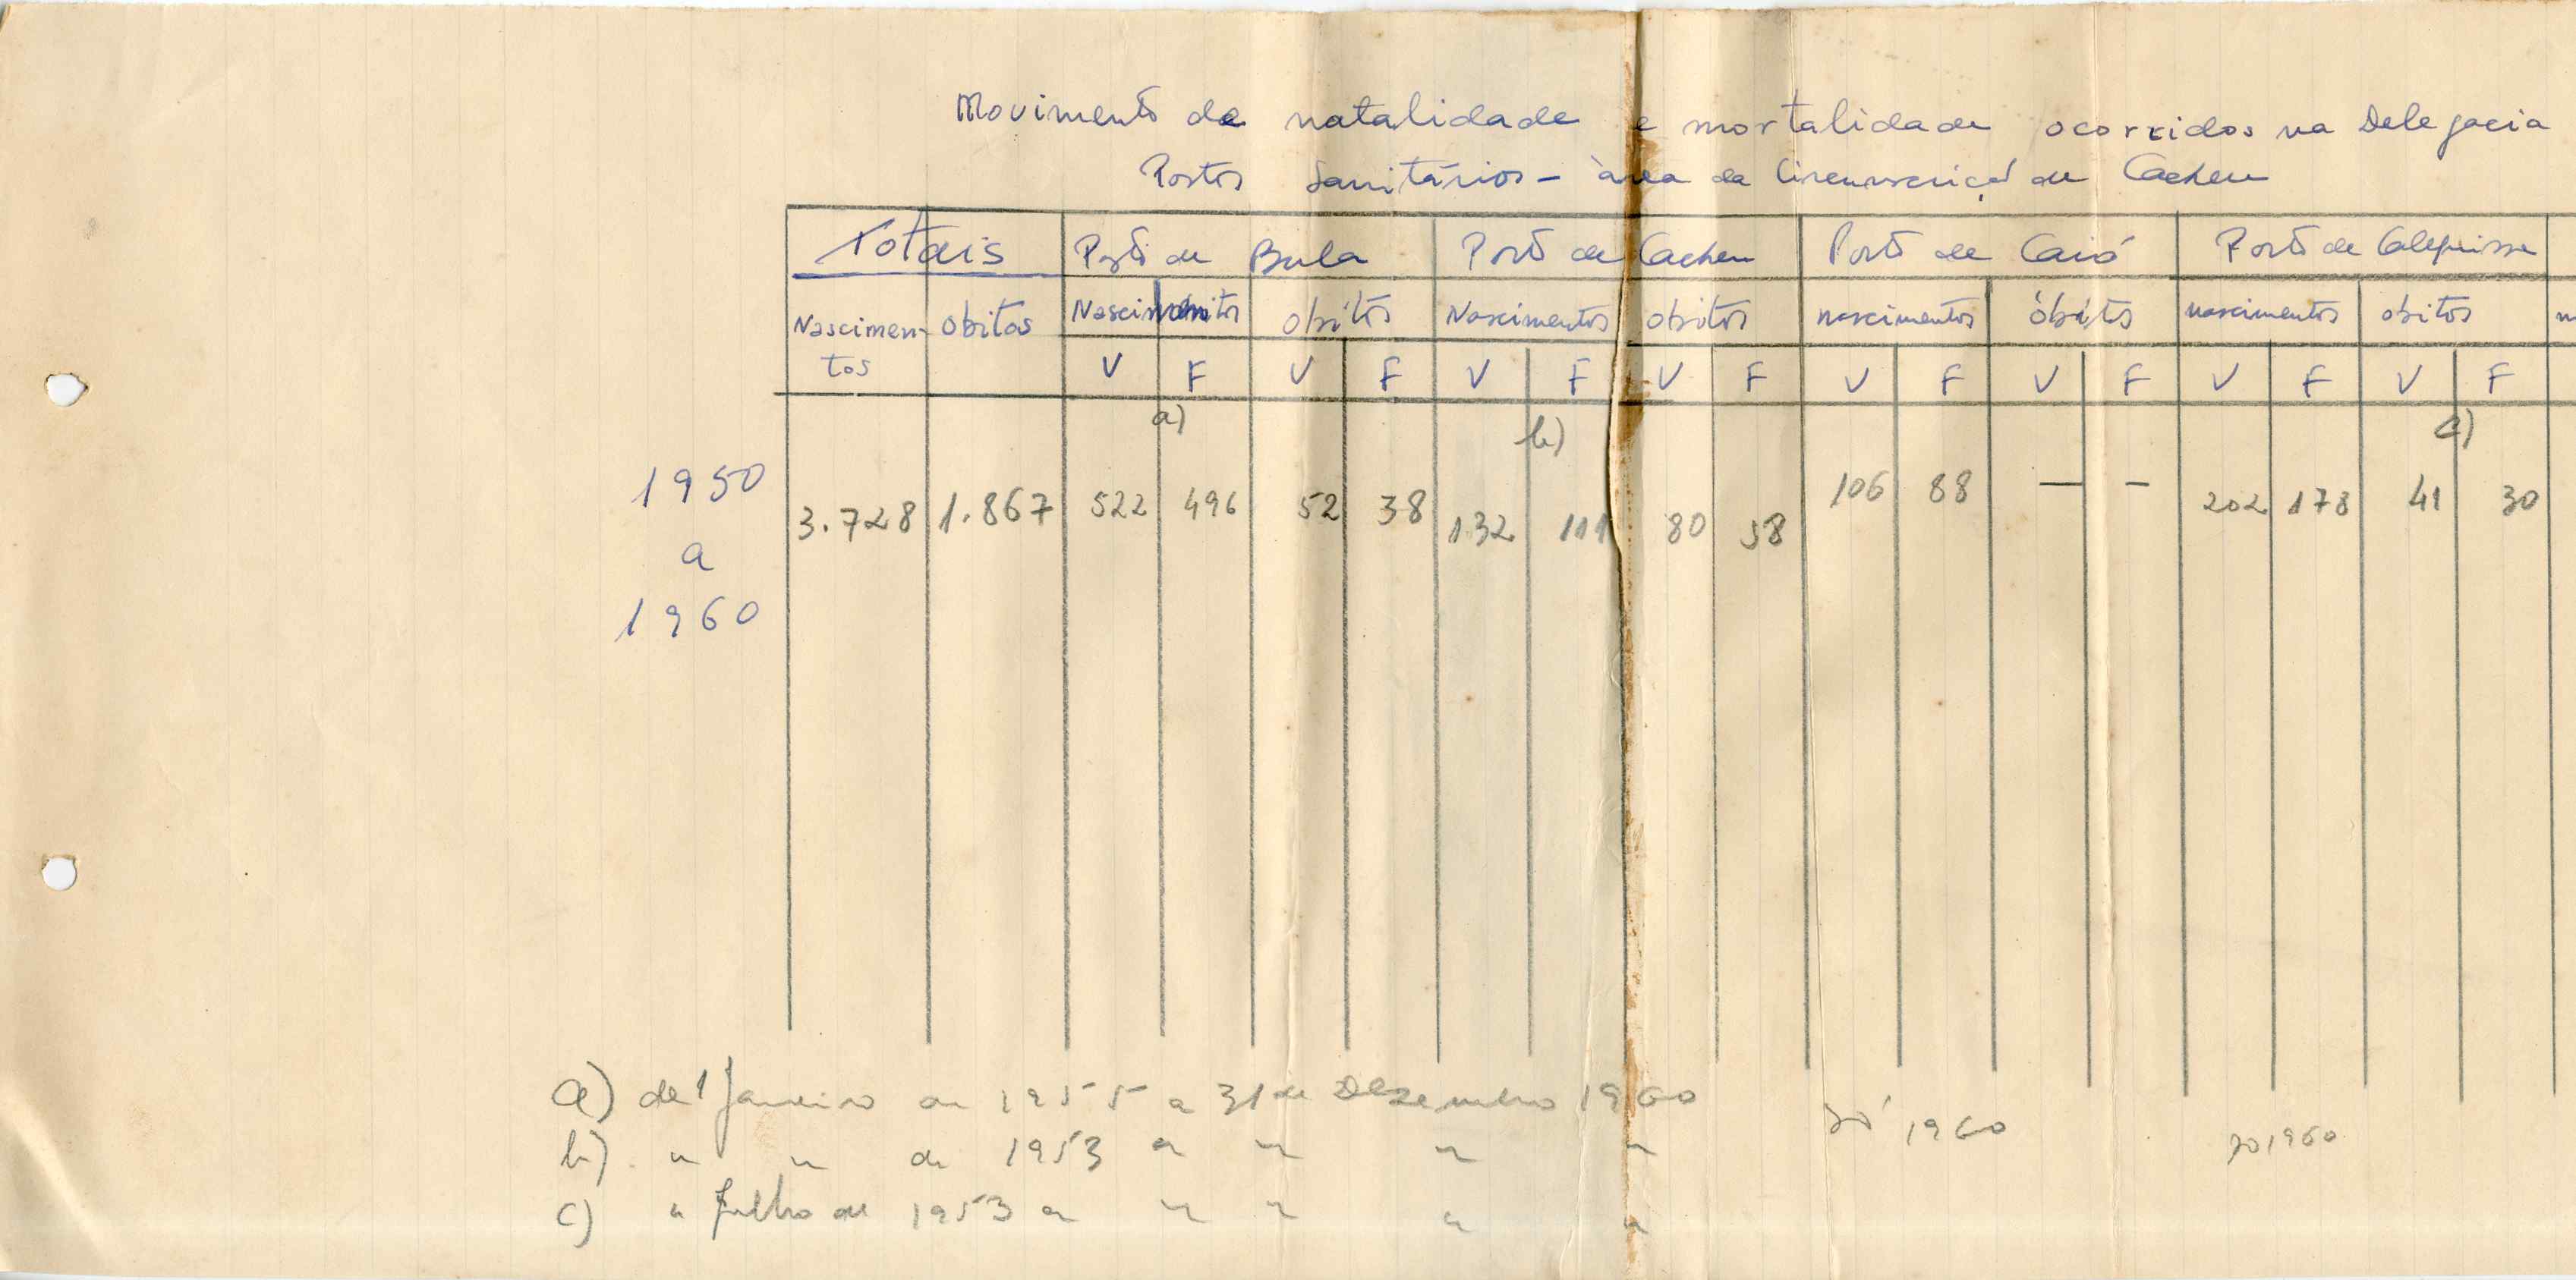 Movimento de natalidade e mortalidade ocorridos na Delegacia
Postos Sanitários - àrea da Circunscriçã de Cacheu
Totais Posto de Bula Posto de Cacheu Posto de Caió Posto de Calequisse
Nascimen- obitos Nascimentos obitos Nascimentos obitos nascimentos óbitos nascimentos obitos
tos V F V F V F V F V F V F V F V F
a) b) c)
1950
3.728 1.867 522 496 52 38 132 111 80 58 106 88 — - 202 178 41 30
a
1960
a) de 1 Janeiro de 1955 a 31 de Dezembro 1960 só 1960
b) " " de 1953 a " " " só 1960
c) " Julho de 1953 a " " " "